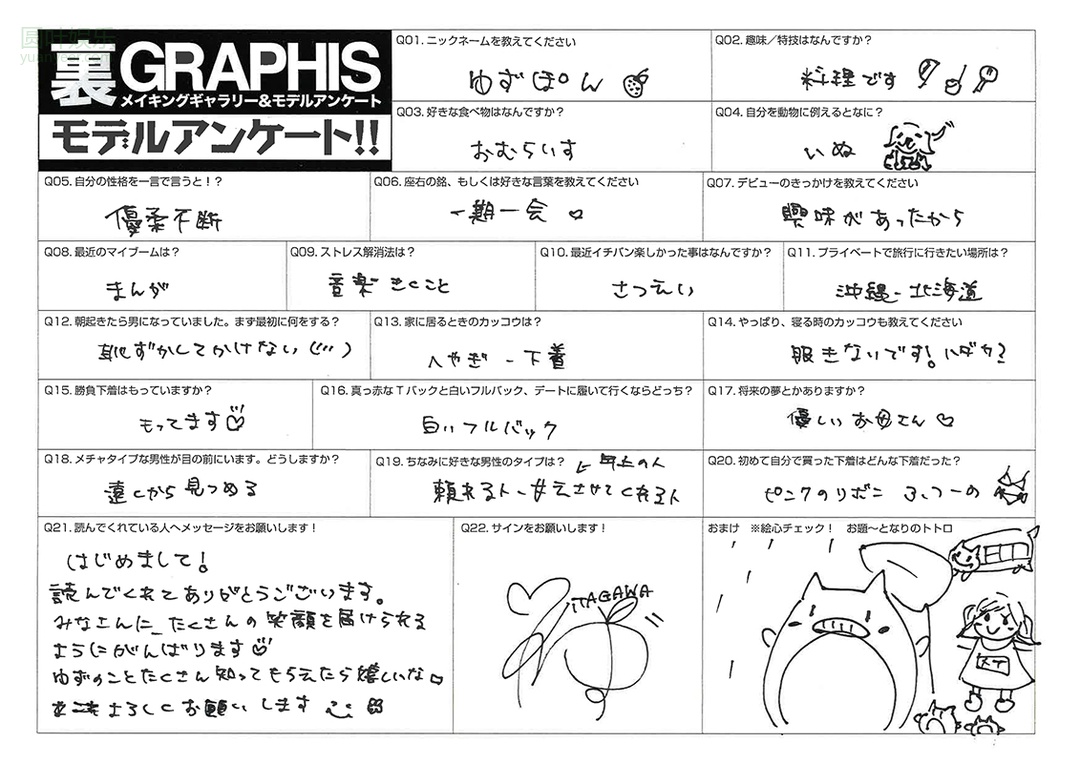 圆叶娱乐
裏GRAPHIS
メイキングギャラリー&モデルアンケート
モデルアンケート!!
Q01. ニックネームを教えてください
ゆずぽん
Q02. 趣味／特技はなんですか？
料理です
Q03. 好きな食べ物はなんですか？
おむらいす
Q04. 自分を動物に例えるとなに？
いぬ
Q05. 自分の性格を一言で言うと！？
優柔不断
Q06. 座右の銘、もしくは好きな言葉を教えてください
一期一会
Q07. デビューのきっかけを教えてください
興味があったから
Q08. 最近のマイブームは？
まんが
Q09. ストレス解消法は？
音楽きくこと
Q10. 最近イチバン楽しかった事はなんですか？
さつえい
Q11. プライベートで旅行に行きたい場所は？
沖縄-北海道
Q12. 朝起きたら男になっていました。まず最初に何をする？
恥ずかしくてかけない
Q13. 家に居るときのカッコウは？
へやぎ-下着
Q14. やっぱり、寝る時のカッコウも教えてください
服きないです! ハダカ？
Q15. 勝負下着はもっていますか？
もってます♡
Q16. 真っ赤なTバックと白いフルバック、デートに履いて行くならどっち？
白いフルバック
Q17. 将来の夢とかありますか？
優しいお母さん♡
Q18. メチャタイプな男性が目の前にいます。どうしますか？
遠くから見つめる
Q19. ちなみに好きな男性のタイプは？ ← 年上の人
頼れる人-甘えさせてくれる人
Q20. 初めて自分で買った下着はどんな下着だった？
ピンクのリボン ふつーの
Q21. 読んでくれている人へメッセージをお願いします！
はじめまして!
読んでくれてありがとうございます。
みなさんに_たくさんの笑顔を届けられる
ようにがんばります♡
ゆずのことたくさん知ってもらえたら嬉しいな♡
よろしくお願いします
Q22. サインをお願いします！
ITAGAWA
おまけ ※絵心チェック！ お題〜となりのトトロ
メイ